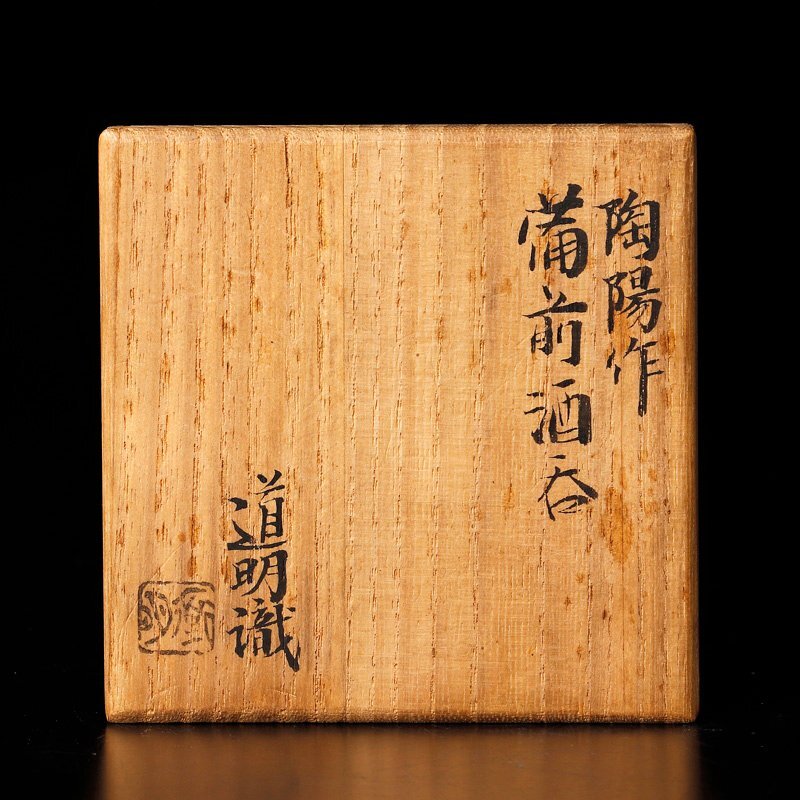 陶陽作
備前酒呑
道明識